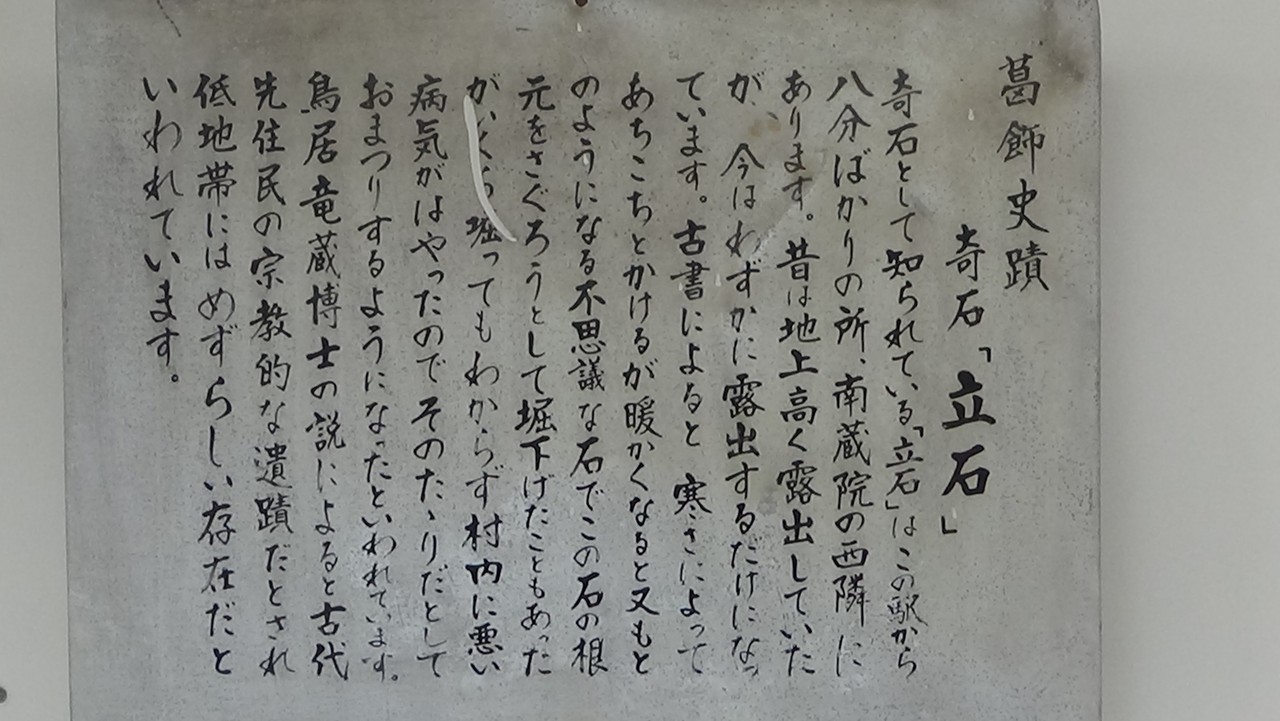 葛飾史蹟
奇石「立石」
奇石として知られている「立石」はこの駅から
八分ばかりの所、南蔵院の西隣に
あります。昔は地上高く露出していた
が、今はわずかに露出するだけになっ
ています。古書によると寒さによって
あちこちとかけるが暖かくなると又もと
のようになる不思議な石でこの石の根
元をさぐろうとして堀下げたこともあった
が、堀ってもわからず村内に悪い
病気がはやったのでそのたゝりだとして
おまつりするようになったといわれています。
鳥居竜蔵博士の説によると古代
先住民の宗教的な遺蹟だとされ
低地帯にはめずらしい存在だと
いわれています。